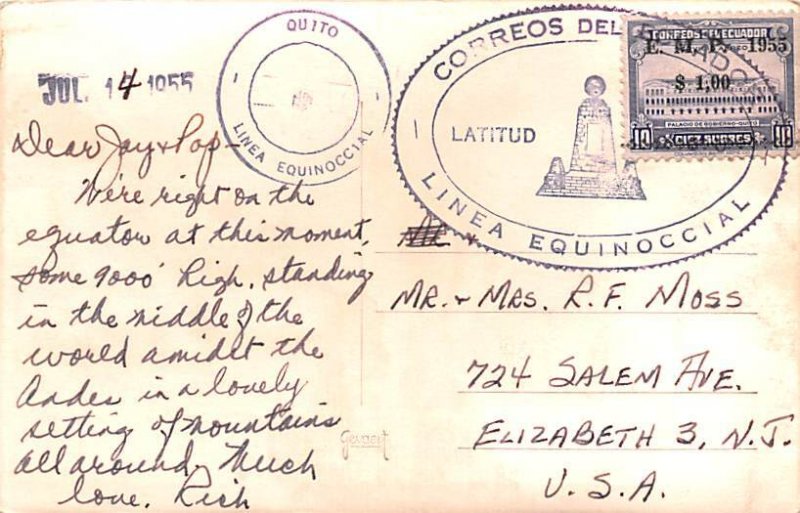 QUITO
LINEA EQUINOCCIAL
JUL 14 1955
CORREOS DEL ECUADOR
LATITUD
LINEA EQUINOCCIAL
CORREOS DEL ECUADOR
E. M. P. 1955
$ 1,00
PALACIO DE GOBIERNO-QUITO
10 SUCRES 10
Dear Jay & Pop-
We're right on the
equator at this moment,
some 9000' high, standing
in the middle of the
world amidst the
Andes in a lovely
setting of mountains
all around. Much
love. Rich
Mr. & Mrs. R. F. Moss
724 Salem Ave.
Elizabeth 3, N.J.
U.S.A.
Gevaert